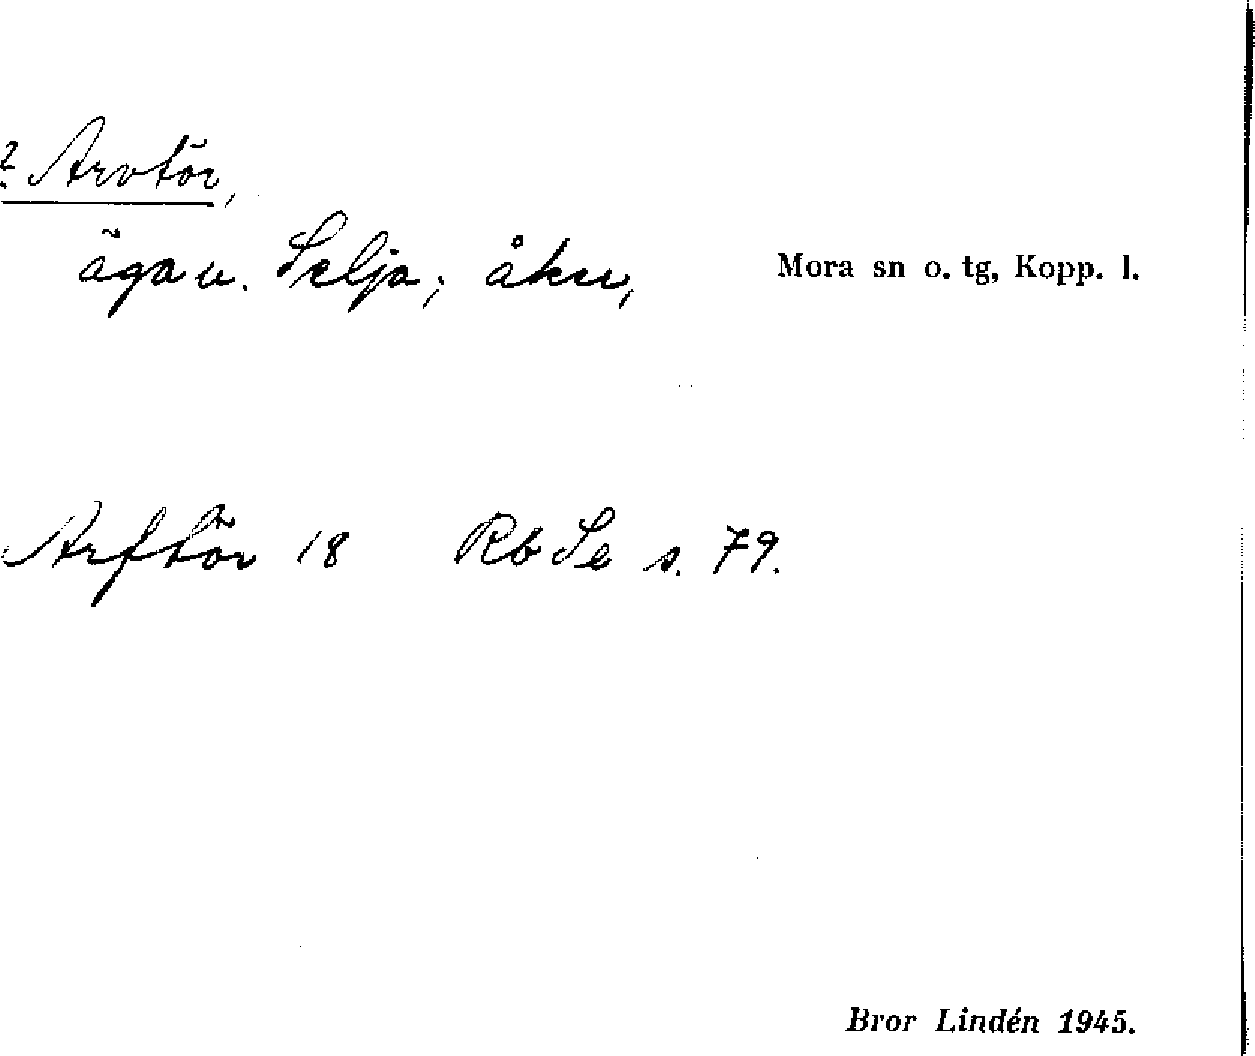 ? Arvtör,
äga u. Selja; åker,
Mora sn o. tg, Kopp. l.
Arftör 18 Rb Se s. 79.
Bror Lindén 1945.